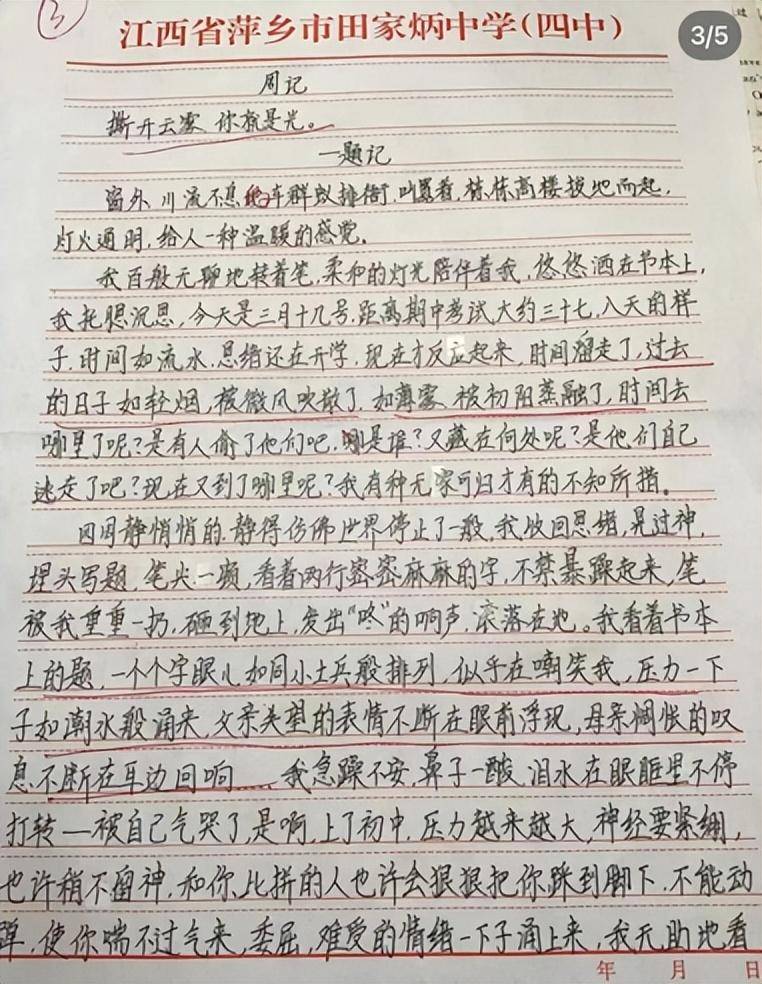 3
江西省萍乡市田家炳中学(四中)
3/5
周记
撕开云雾 你就是光。
一题记
窗外,川流不息 车群蚁排衙,叫嚣着,栋栋高楼拔地而起,
灯火通明,给人一种温暖的感觉。
我百般无聊地转着笔,柔和的灯光陪伴着我,悠悠洒在书本上,
我托腮沉思,今天是三月十九号,距离期中考试大约三十七,八天的样
子,时间如流水,思绪还在开学,现在才反应起来,时间溜走了,过去
的日子如轻烟,被微风吹散了,如薄雾,被初阳蒸融了,时间去
哪里了呢?是有人偷了他们吧,哪是谁?又藏在何处呢?是他们自己
逃走了吧?现在又到了哪里呢?我有种无家可归才有的不知所措。
四周静悄悄的,静得仿佛世界停止了一般,我收回思绪,晃过神,
埋头写题,笔尖一顿,看着两行密密麻麻的字,不禁暴躁起来,笔
被我重重一扔,砸到地上,发出“咚”的响声,滚落在地。我看着书本
上的题,一个个字眼儿如同小士兵般排列,似乎在嘲笑我,压力一下
子如潮水般涌来,父亲失望的表情不断在眼前浮现,母亲惆怅的叹
息不断在耳边回响……我急躁不安,鼻子一酸,泪水在眼眶里不停
打转—被自己气哭了,是啊,上了初中,压力越来越大,神经要紧绷,
也许稍不留神,和你比拼的人也许会狠狠把你踩到脚下,不能动
弹,使你喘不过气来,委屈,难受的情绪一下子涌上来,我无助地看
年 月 日